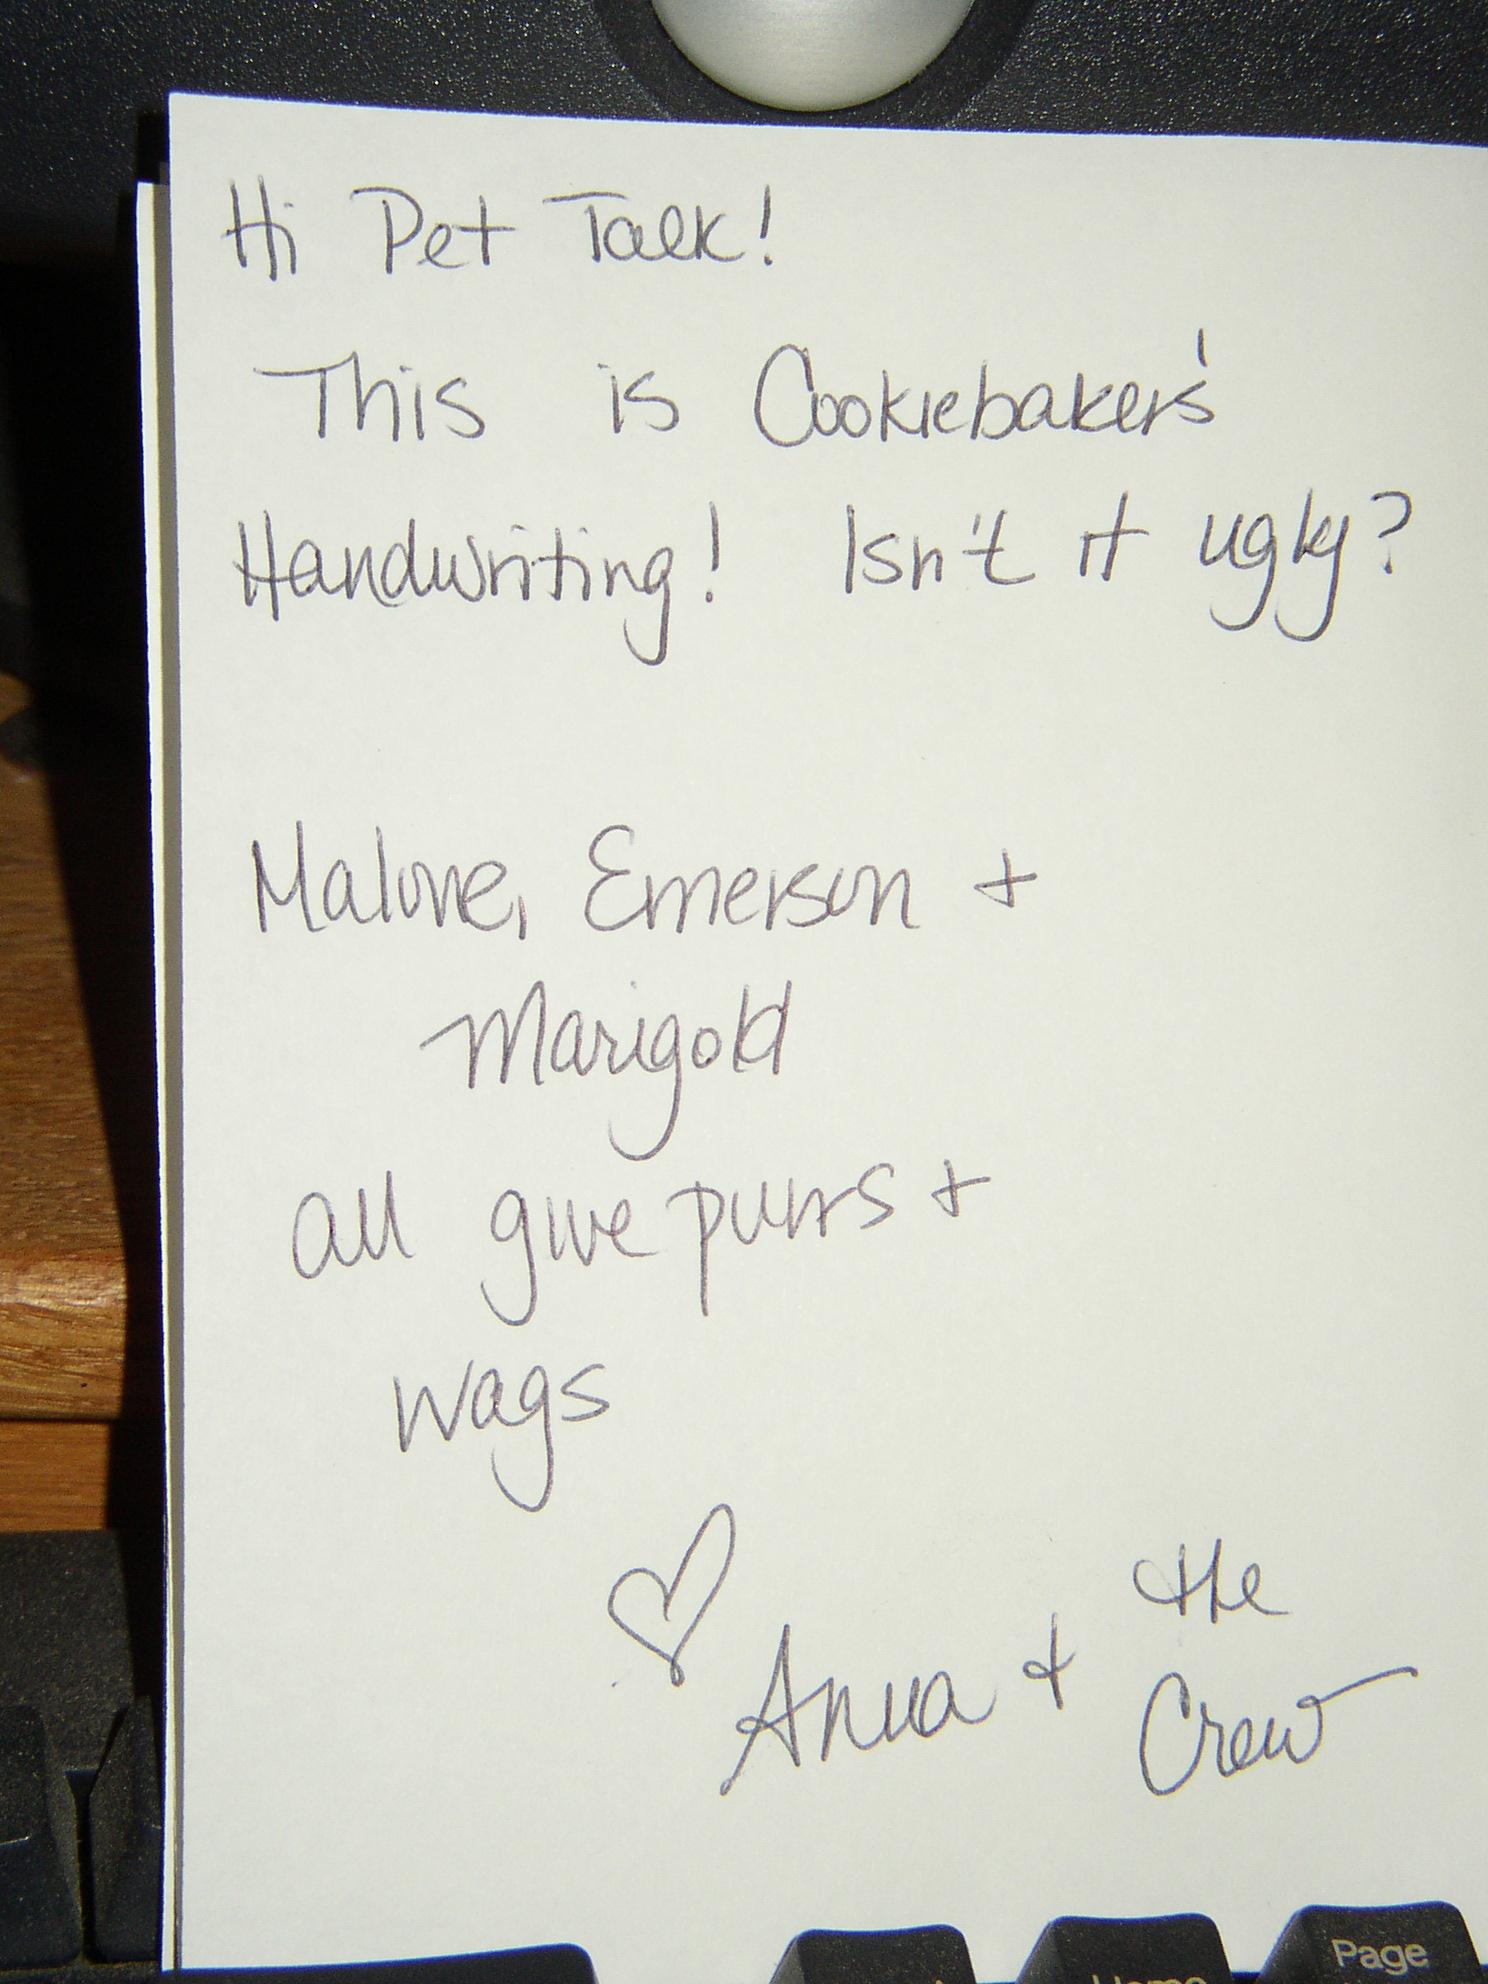 Hi Pet Talk!
This is Cookiebaker's
Handwriting! Isn't it ugly?
Malone, Emerson +
Marigold
all give purrs +
wags
Anna + the
Crew
Page
Home